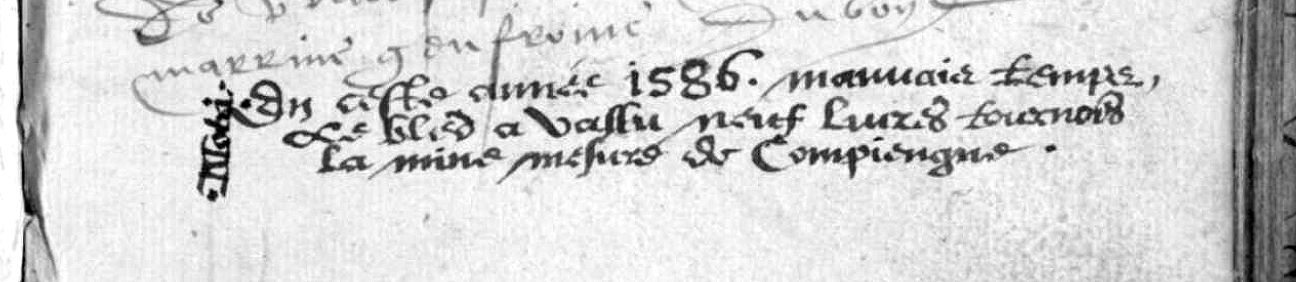 marrine
En ceste année 1586. mauvais temps,
Le bled a vallu neuf livres tournois
La mine mesure de Compiengne .
.Nota.